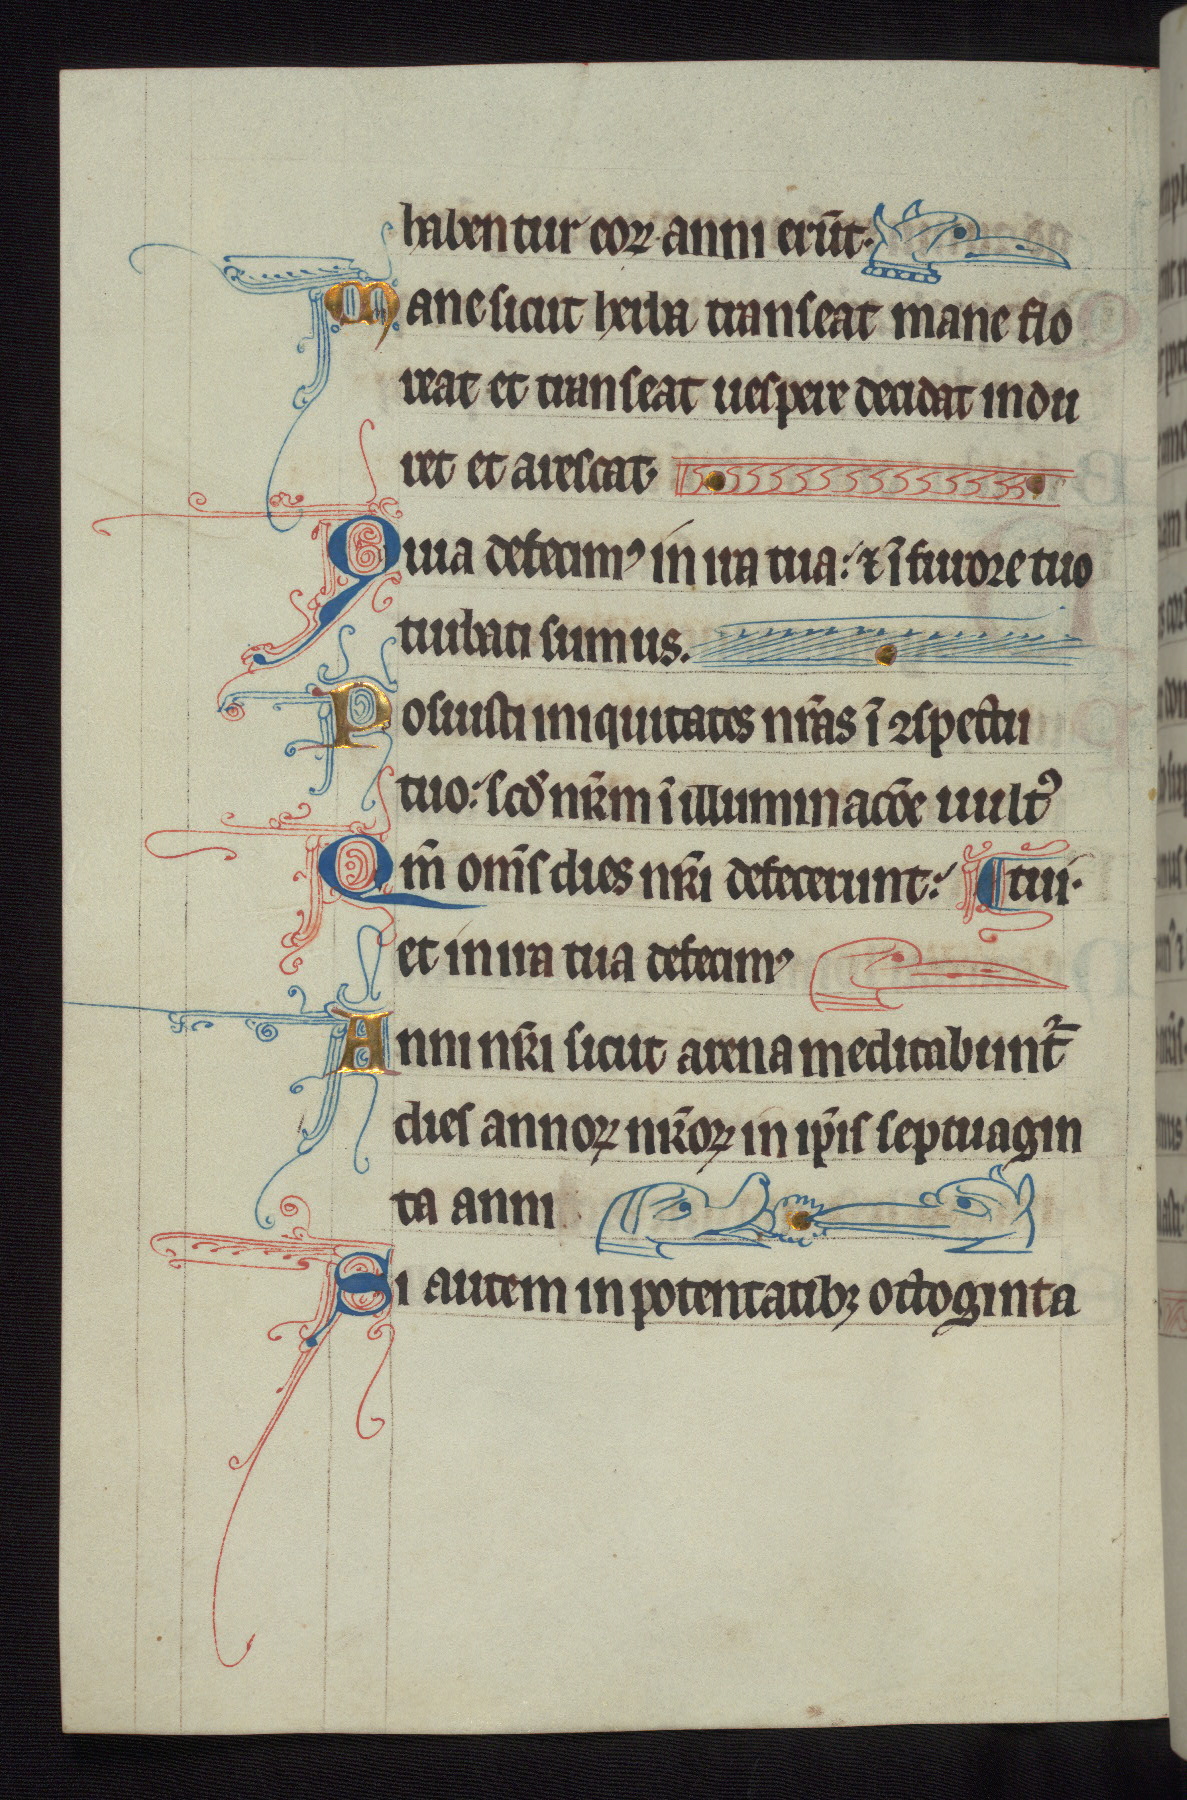 habentur eoꝝ anni erūt·
Mane sicut herba transeat mane flo
reat et transeat uespere decidat indu
ret et arescat·
Quia defecimꝰ in ira tua: ⁊ ī furore tuo
turbati sumus.
Posuisti iniquitates nr̄as ī ꝯspectu
tuo: sc̄đm nr̄m ī illuminacōe uultꝰ
Qm̄ om̄s dies nr̄i defecerunt: tui·
et in ira tua defecimꝰ
Anni nr̄i sicut arena meditabunt᷑
dies annoꝝ nr̄oꝝ in ip̄is septuagin
ta anni
Si autem in potentatibꝫ octoginta